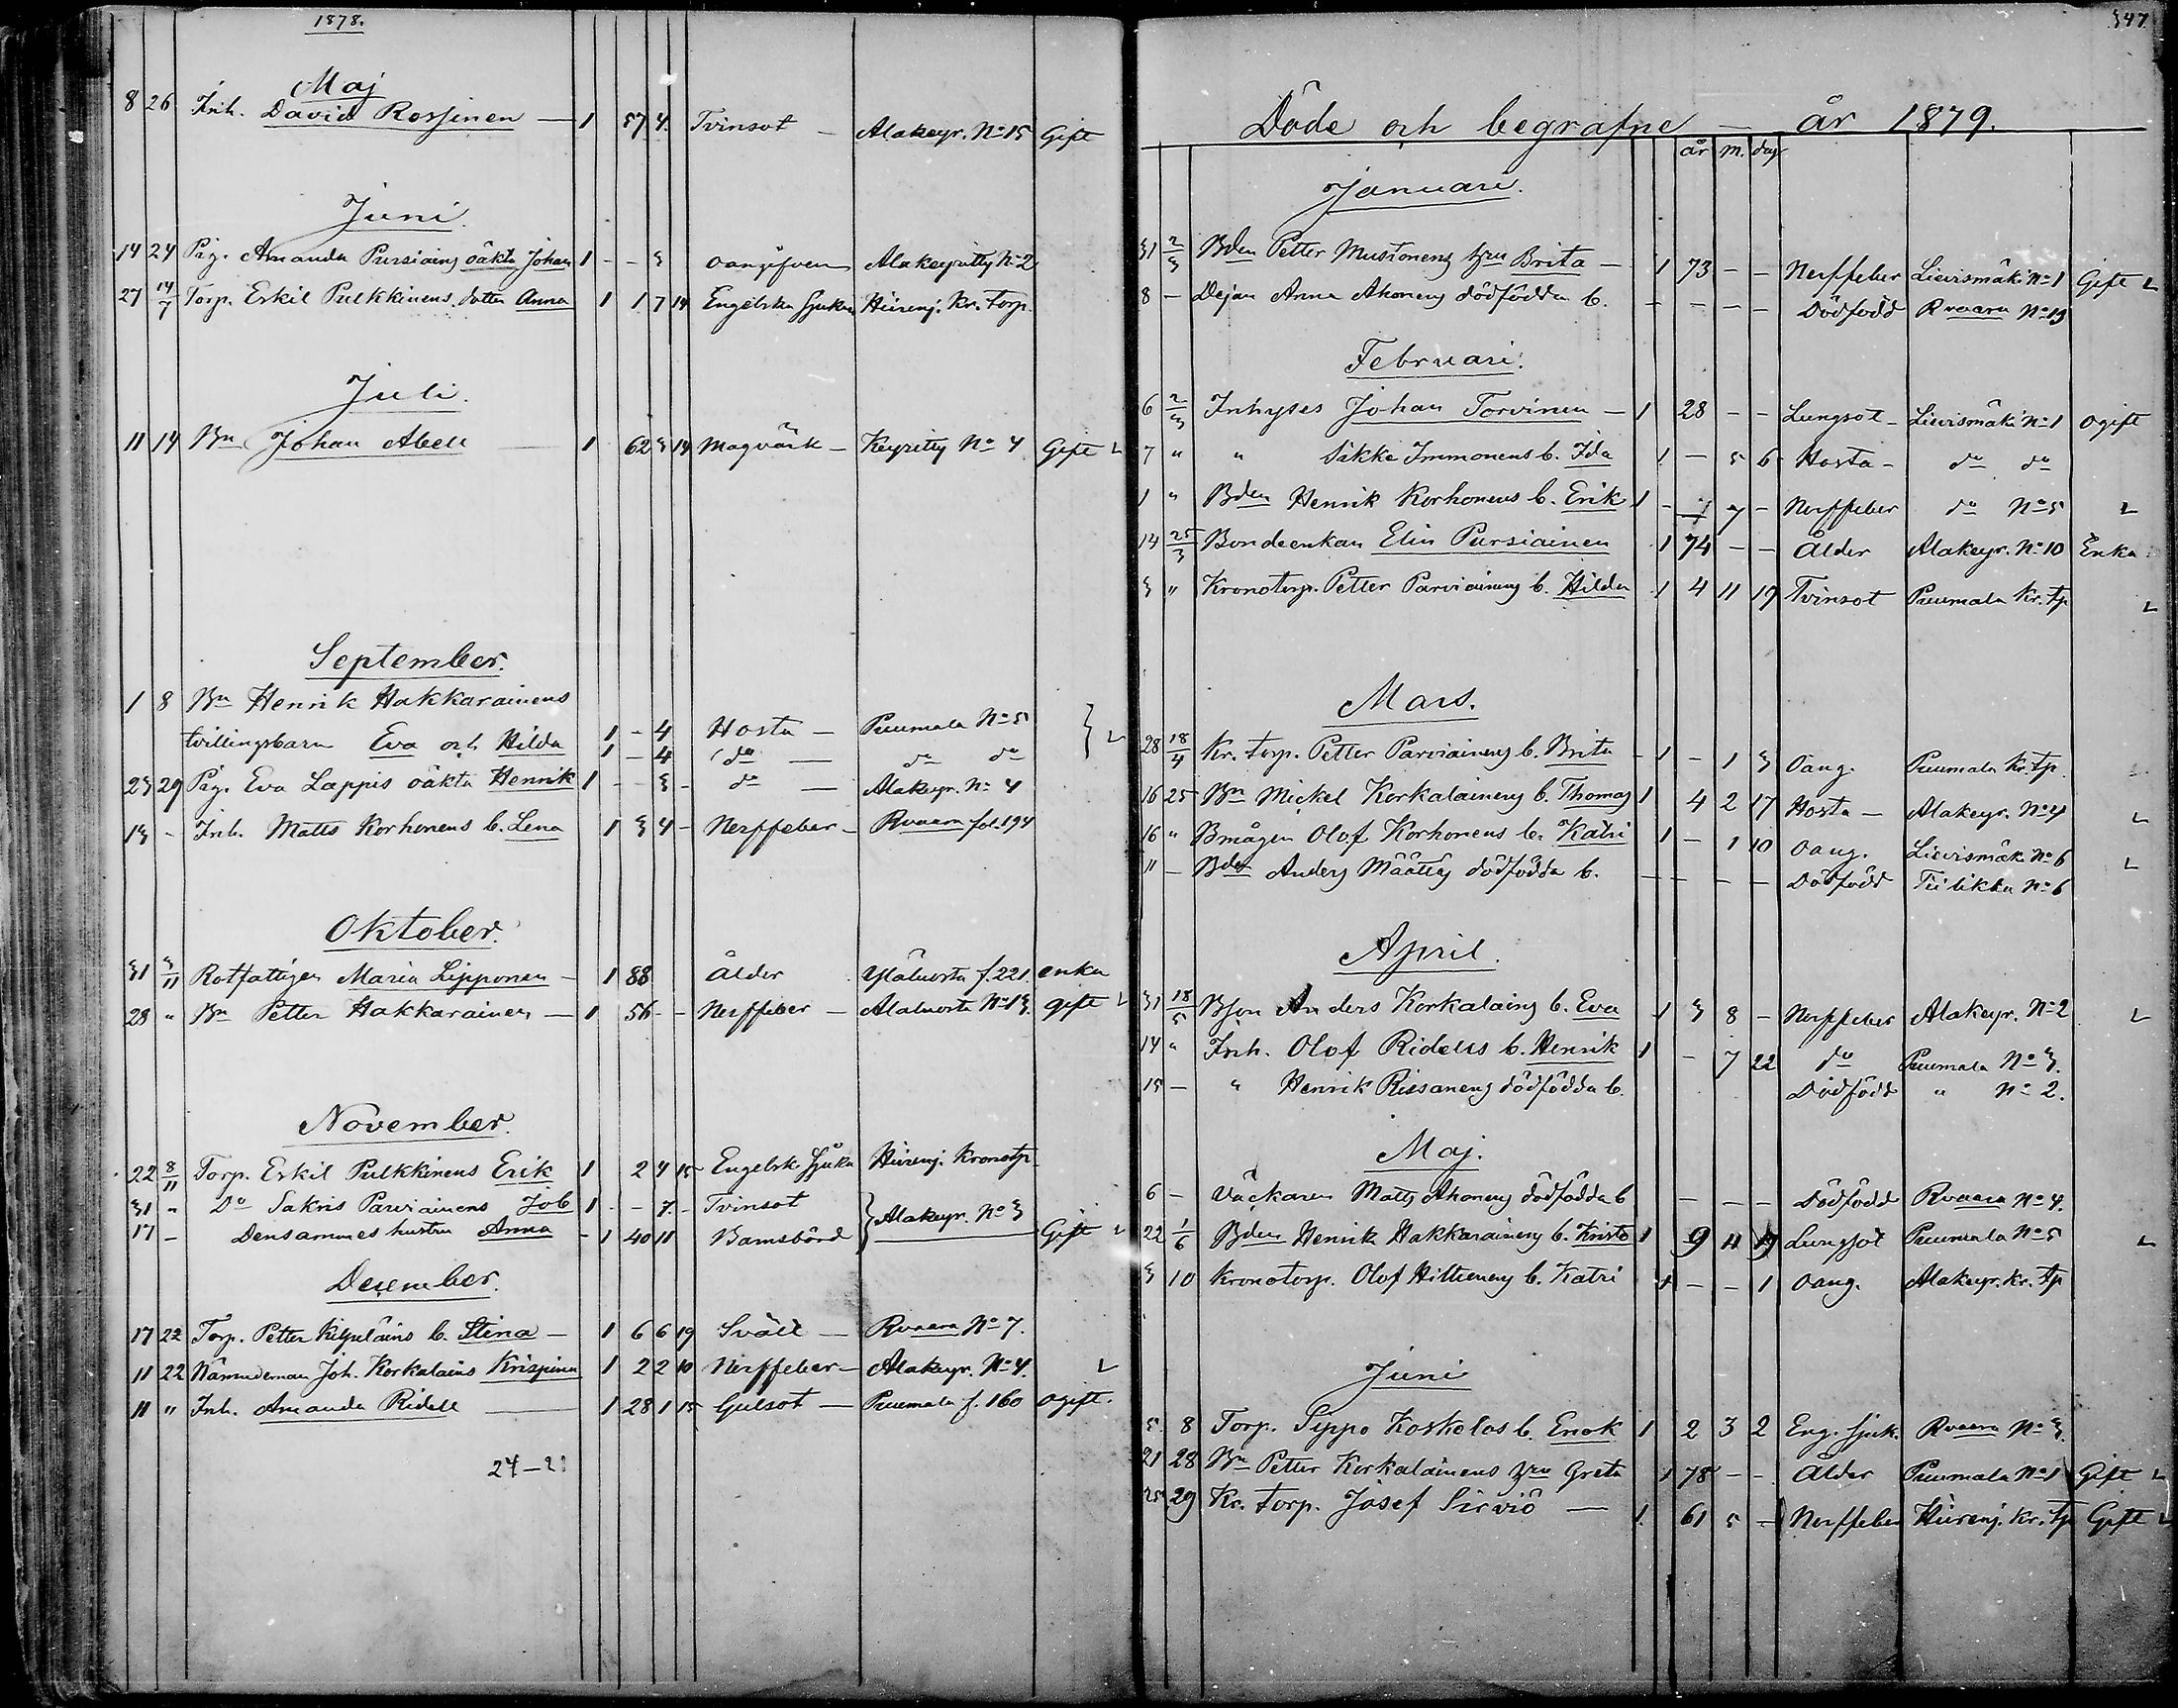 1878.
Maj
8 26 Inh. David Rossinen — 1 57 4. Tvinsot — Alakeyr. No 15 Gift
Juni
14 24 Pig. Amanda Pursiains oäkta Johan 1 - - 3 oangifven Alakeyritty No 2
27 14/7 Torp. Eskil Pulkkinens dotter Anna 1 1 7 14 Engelska sjukan Hiirenj. Kr. torp.
Juli.
11 14 Bn Johan Abell — 1 62 3 14 Magvärk — Keyritty No 4 Gift
September.
1 8 Bn Henrik Hakkarainens
tvillingsbarn Eva och Hilda 1 - 4 Hosta — Puumala No 5
1 - 4 do — do do
23 29 Pig. Eva Lappis oäkta Henrik 1 - - 3 - do — Alakeyr. No 4
13 - Inh. Matts Korhonens b. Lena 1 3 4 - Nerffeber - Rvaara fol. 194
Oktober.
31 3/11 Rotfattigen Maria Lipponen - 1 88 ålder Yläluosta f. 221. enka
28 " Bn Petter Hakkarainen — 1 56 - - Nerffeber — Alaluosta No 13. gift
November.
22 8/11 Torp. Eskil Pulkkinens Erik 1 2 4 15 Engelsk sjuka Hiirenj. Kronotp
31 " Do Sakris Parviainens Job 1 - - 7. - Tvinsot
17 - Densammes hustru Anna - 1 40 11 Barnsbörd Alakeyr. No 3 Gift
December.
17 22 Torp. Petter Kilpeläins b. Stina — 1 6 6 19 Sväll — Rvaara No 7.
11 22 Nämndeman Joh. Korkalains Krispina 1 2 2 10 Nerffeber — Alakeyr. No 4.
11 " Inh. Amanda Ridell — 1 28 1 15 Gulsot — Puumala f. 160 ogift.
24 - 2
347.
Döde och begrafne — år 1879.
år m. dag
Januari.
31 2/3 Bden Petter Mustonens hru Brita — 1 73 - - Nerffeber Lievismäki No 1 Gift
8 - Dejan Anna Ahonens dödfödda b. - - - - Dödfödd Rvaara No 19
Februari.
6 2/3 Inhyses Johan Torvinen — 1 28 - - Lungsot - Lievismäki No 1 ogift
7 " " Sikke Immonens b. Ida 1 - 5 6 Hosta - do do
1 " Bden Henrik Korhonens b. Erik 1 - 7 - Nerffeber do No 5
14 25/3 Bondeenkan Elin Pursiainen 1 74 - - Ålder Alakeyr. No 10 Enka
3 " Kronotorp. Petter Parviainens b. Hilda 1 4 11 19 Tvinsot Puumala Kr. tp
Mars.
28 18/4 Kr. torp. Petter Parviainens b. Brita - 1 - 1 3 Oang. Puumala Kr. tp.
16 25 Bn Mickel Korkalainens b. Thomas 1 4 2 17 Hosta — Alakeyr. No 4
16 " Bmågen Olof Korhonens b. Katri 1 - 1 10 Oang. Lievismäk. No 6
11 - Bden Anders Määttas dödfödda b. - - - - Dödfödd Tiilikka No 6
April.
31 18/5 Bson Anders Korkalains b. Eva 1 3 8 - Nerffeber Alakeyr. No 2
14 " Inh. Olof Ridells b. Henrik 1 - 7 22 do Puumala No 3.
15 - " Henrik Riesanens dödfödda b. Dödfödd " No 2.
Maj.
6 - Väckaren Matts Ahonens dödfödda b - - - Dödfödd Rvaara No 4.
22 1/6 Bden Henrik Hakkarainens b. Kristo 1 9 11 19 Lungsot Puumala No 5
3 10 Kronotorp. Olof Hiltunens b. Katri 1 - - 1 Oang. Alakeyr. Kr. tp
Juni
5. 8 Torp. Seppo Koskelos b. Enok 1 2 3 2 Eng. sjuk. Rvaara No 3.
21 28 Bn Petter Korkalainens hru Greta 1 78 - - Ålder Puumala No 1 Gift
25 29 Kr. torp. Josef Sirviö — 1. 61 5 - Nerffeber Hiirenj. Kr. tp Gift